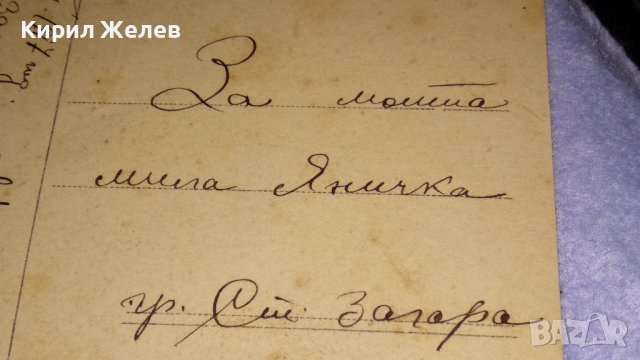 Кирил Желев
За моята
мила Яничка
гр. Ст. Загора
BAZAR